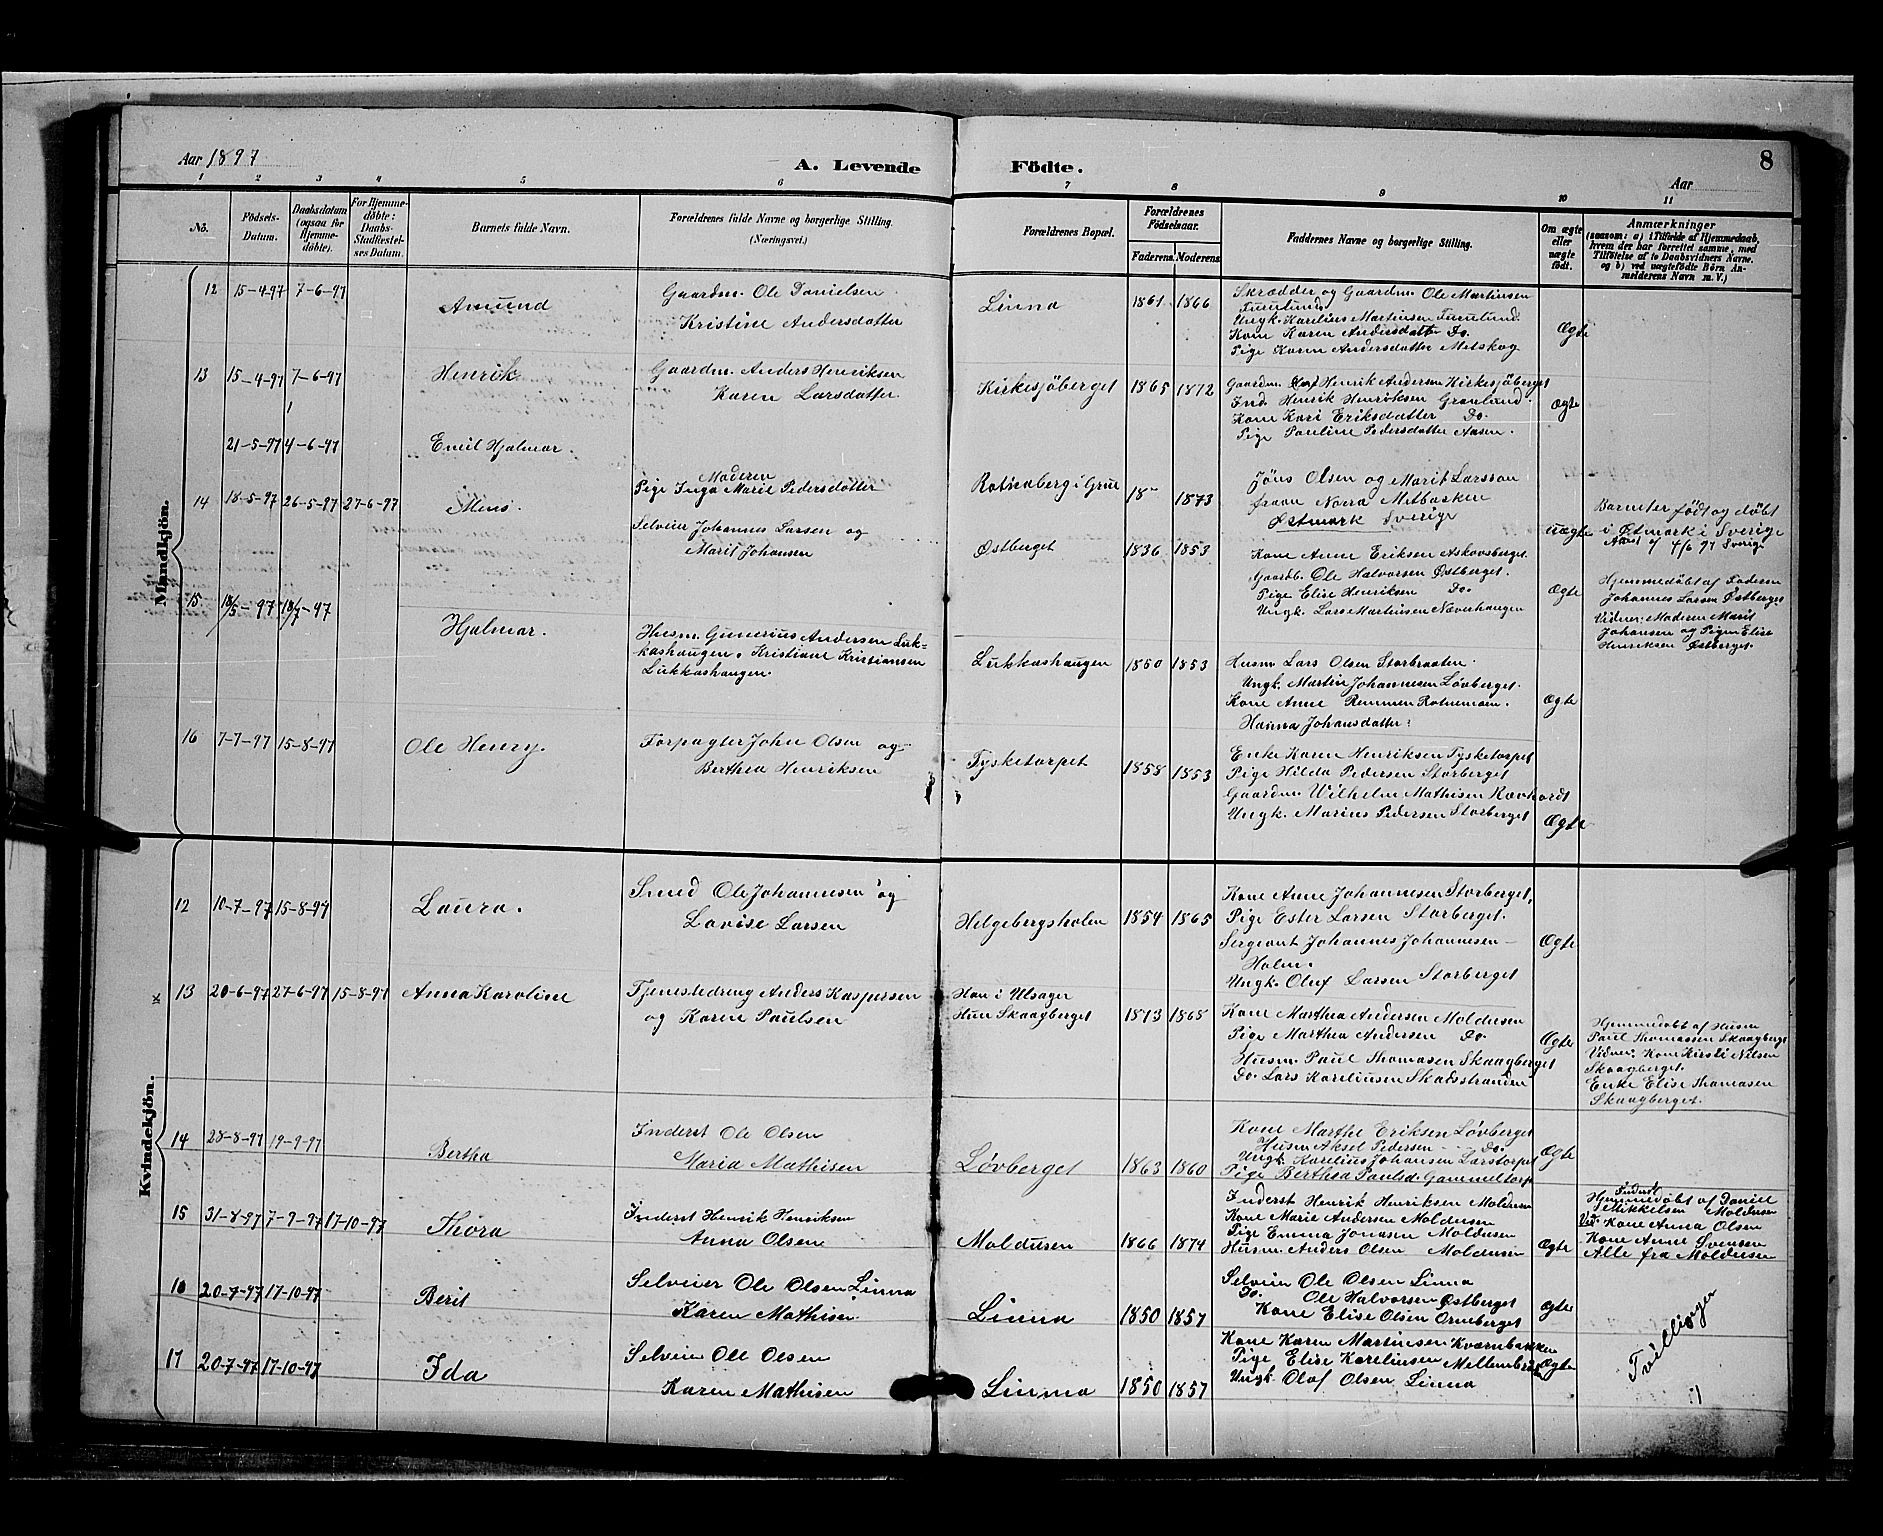 Aar 1897
A. Levende Födte.
8
Aar
1 2 3 4 5 6 7 8 9 10 11
No.
Födsels-Datum.
Daabsdatum (ogsaa for Hjemmedöbte).
For Hjemmedöbte: Daabs-Stadfæstelses Datum.
Barnets fulde Navn.
Forældrenes fulde Navne og borgerlige Stilling. (Næringsvei.)
Forældrenes Bopæl.
Forældrenes Födselsaar.
Faderens. Moderens.
Faddernes Navne og borgerlige Stilling.
Om ægte eller uægte födt.
Anmærkninger
(saasom: a) i Tilfælde af Hjemmedaab,
hvem der har forrettet samme, med
Tilföielse af to Daabsvidners Navne.
og b) ved uægtefödte Börn An-
melderens Navn m. V.)
Mandkjön.
12 15-4-97 7-6-97
Amund
Gaardm. Ole Danielsen
Kristine Andersdatter
Linna
1861 1866
Skrædder og Gaardm. Ole Martinsen
Furulund.
Ungk. Karelius Martinsen Furulund.
Kone Karen Andersdatter Do.
Pige Karen Andersdatter Metskog
Ægte
13 15-4-97 7-6-97
Henrik
Gaardm. Anders Henriksen
Karen Larsdatter.
Kirkesjöberget
1865 1872
Gaardm. Henrik Andersen Kirkesjöberget
Ind. Henrik Henriksen Grønlund.
Kone Kari Eriksdatter Do.
Pige Pauline Pedersdatter Aasen.
Ægte
21-5-97 4-6-97
Emil Hjalmar.
Moderen
Pige Inga Marie Pedersdatter
Rotneberg i Grue
18- 1873
Jöns Olsen og Marit Larsson
fraan Norra Metbacken
Østmark Sverige
uægte
Barnet er født og døbt
i Østmark i Sverige
4/6 97 Sverige
14 18-5-97 26-5-97 27-6-97
Mens.
Selveier Johannes Larsen og
Marit Johansen
Østberget
1836 1853
Kone Anne Eriksen Askovsberget
Gaardb. Ole Halvorsen Østberget.
Pige Elise Henriksen Do.
Ungk. Lars Martinsen Næverhaugen
Ægte
Hjemmedøbt af Faderen
Johannes Larsen Østberget.
Vidner: Moderen Marit
Johansen og Pigen Elise
Henriksen Østberget.
15 18/5-97 18/7-97
Hjalmar.
Husm. Gunerius Andersen Luk-
kashaugen. Kristiane Kristiansen
Lukkashaugen.
Lukkashaugen
1850 1853
Husm Lars Olsen Storbraaten.
Ungk. Martin Johannesen Løvberget.
Kone Anne Remmen Rotnemoen.
Hanna Johansdatter:
Ægte
16 7-7-97 15-8-97
Ole Henry.
Forpagter John Olsen og
Berthea Henriksen
Tysketorpet
1858 1853
Enke Karen Henriksen Tysketorpet
Pige Hilda Pedersen Storberget
Gaardm. Wilhelm Mathisen Rævholdt
Ungk. Marius Pedersen Storberget
Ægte
Kvindekjön.
12 10-7-97 15-8-97
Laura.
Smed Ole Johannesen og
Lovise Larsen
Helgebergsholen
1854 1865
Kone Anne Johannesen Storberget,
Pige Ester Larsen Storberget.
Sergeant Johannes Johannesen-
Holen.
Ungk. Oluf Larsen Storberget
Ægte
13 20-6-97 27-6-97 15-8-97
Anna Karoline
Tjenestedreng Anders Kaspersen
og Karen Paulsen
Han i Ulsager
Hun Skaagberget
1873 1868
Kone Marthea Andersen Moldusen
Pige Marthea Andersen Do.
Husm. Paul Thomasen Skaagberget
Do. Lars Karelinsen Skadsstranden
Ægte
Hjemmedøbt af Husm
Paul Thomassen Skaagberget
Vidner: Kone Kirsti Nilsen
Skaagberget.
Enke Elise Thomasen
Skaagberget.
14 28-8-97 19-9-97
Bertha
Inderst Ole Olsen
Maria Mathisen
Løvberget
1863 1860
Kone Marthe Eriksen Løvberget
Husm Aksel Pedersen - Do.
Ungk. Karelius Johansen Larstorpet
Pige Berthea Paulsd. Gammeltorp
Ægte
15 31-8-97 7-9-97 17-10-97
Thora
Inderst Henrik Henriksen
Anna Olsen
Moldusen
1866 1874
Inderst Henrik Henriksen Moldusen
Kone Marie Andersen Moldusen
Pige Emma Jonasen Moldusen
Husm. Anders Olsen Moldusen
Ægte
Inderst
Hjemmedøbt af Daniel
Mikkelsen Moldusen
Vid: Kone Anna Olsen
Kone Anne Svensen
Alle fra Moldusen
16 20-7-97 17-10-97
Berit
Selveier Ole Olsen Linna
Karen Mathisen
Linna
1850 1857
Selveier Ole Olsen Linna
Do. Ole Halvorsen Østberget
Kone Elise Olsen Orneberget
Ægte
Tvillinger
17 20-7-97 17-10-97
Ida
Selveier Ole Olsen
Karen Mathisen
Linna
1850 1857
Kone Karen Martinsen Kværnbakken
Pige Elise Karelinsen
Ungk. Olaf Olsen Linna
Ægte